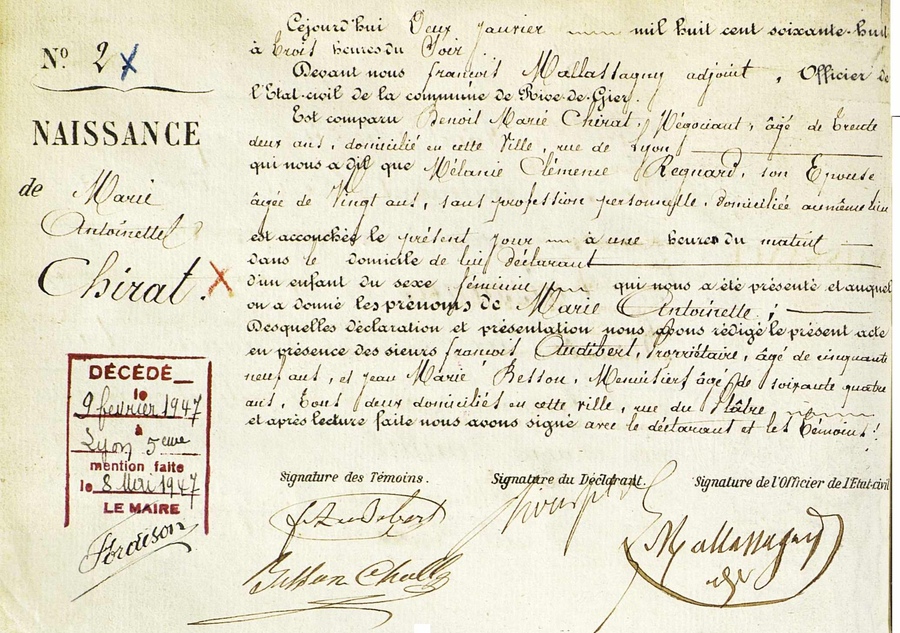 Nº 2
NAISSANCE
de Marie
Antoinette
Chirat.
DÉCÉDÉ
le
9 février 1947
à
Lyon 5eme
mention faite
le 8 Mai 1947
LE MAIRE
Cejourd'hui Deux Janvier mil huit cent soixante-huit
à trois heures du Soir
Devant nous françois Mallassagny adjoint, Officier de
l'Etat-civil de la commune de Rive-de-Gier.
Est comparu Benoit Marie Chirat, Négociant, âgé de trente
deux ans, domicilié en cette Ville, rue de Lyon
qui nous a dit que Mélanie Clémence Regnard, son Epouse
âgée de Vingt ans, sans profession personnelle, domiciliée au même lieu
est accouchée le présent jour à une heures du matin
dans le domicile de lui déclarant
d'un enfant du sexe féminin qui nous a été présenté et auquel
on a donné les prénoms de Marie Antoinette ;
Desquelles déclaration et présentation nous avons rédigé le présent acte
en présence des sieurs françois Audibert, propriétaire, âgé de cinquante
neuf ans, et Jean Marie Besson, Menuisier âgé de soixante quatre
ans, tous deux domiciliés en cette ville, rue du Plâtre
et après lecture faite nous avons signé avec le déclarant et les témoins.
Signature des Témoins. Signature du Déclarant. Signature de l'Officier de l'Etat-civil
Mallassagny